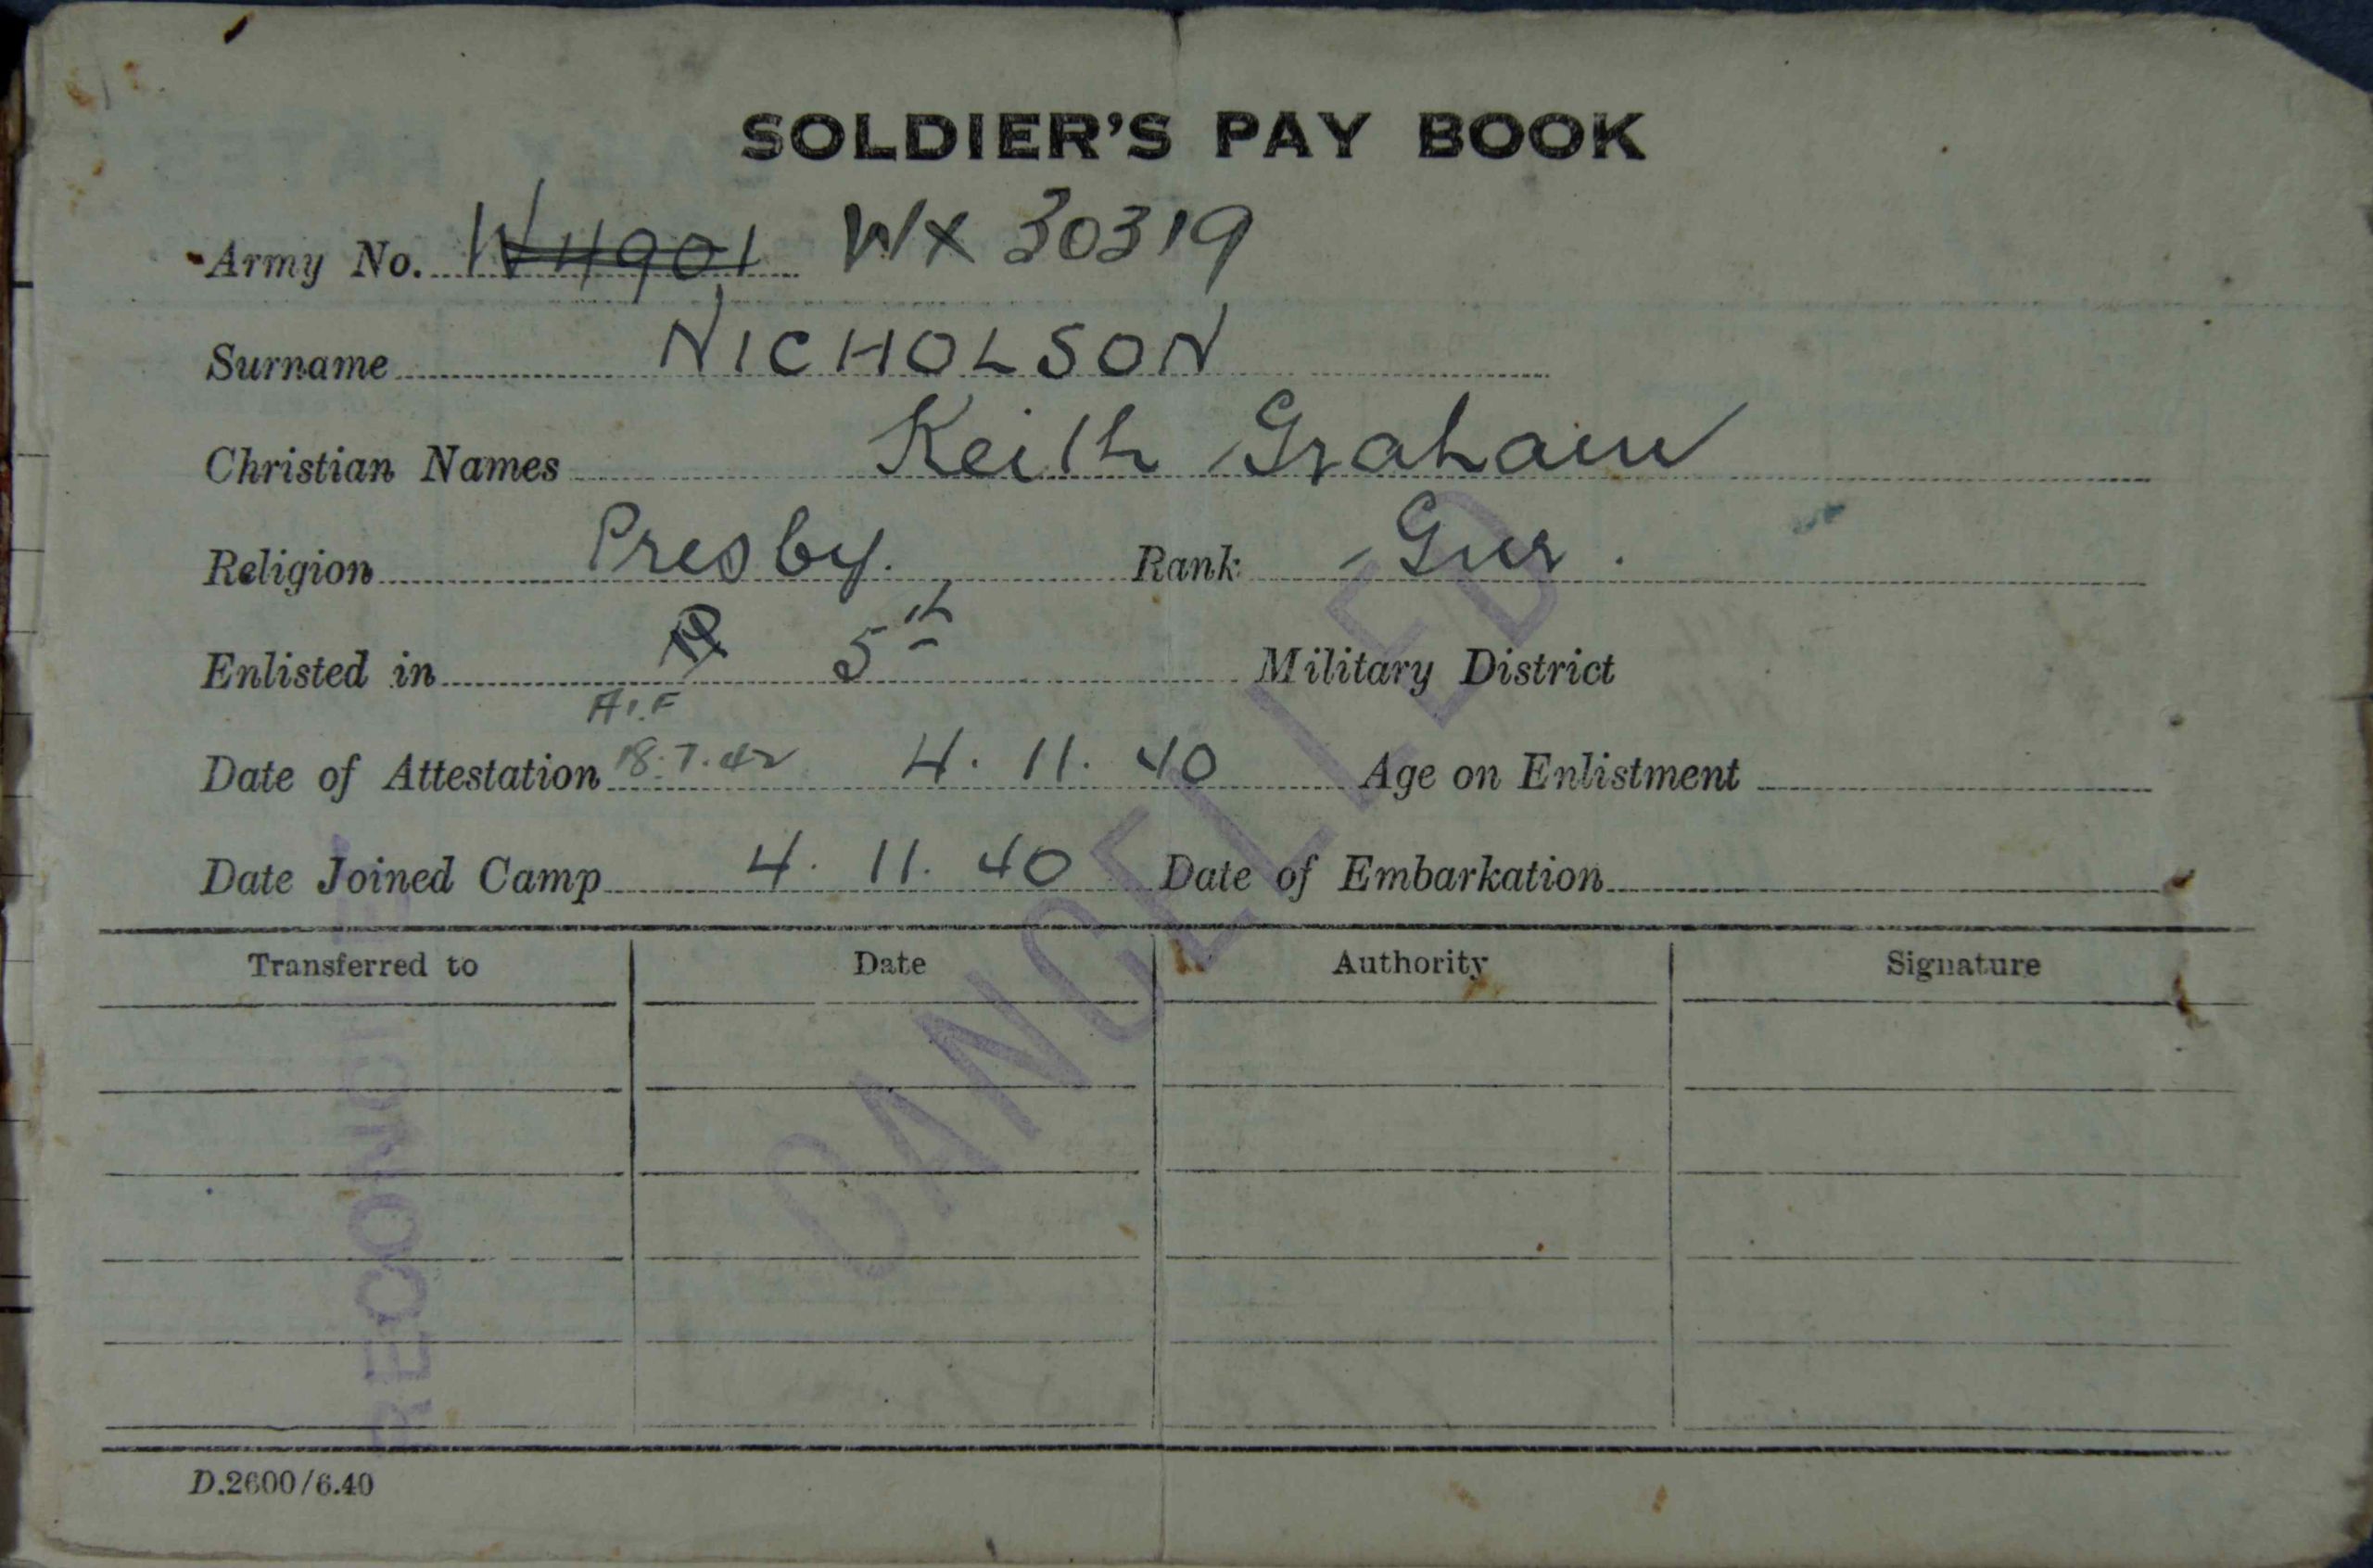 SOLDIER'S PAY BOOK
Army No. W4901 WX 30319
Surname NICHOLSON
Christian Names Keith Graham
Religion Presby. Rank Gnr.
Enlisted in 5th Military District
A.I.F
Date of Attestation 18.7.42 4.11.40 Age on Enlistment
Date Joined Camp 4.11.40 Date of Embarkation
Transferred to Date Authority Signature
CANCELLED
D.2600/6.40